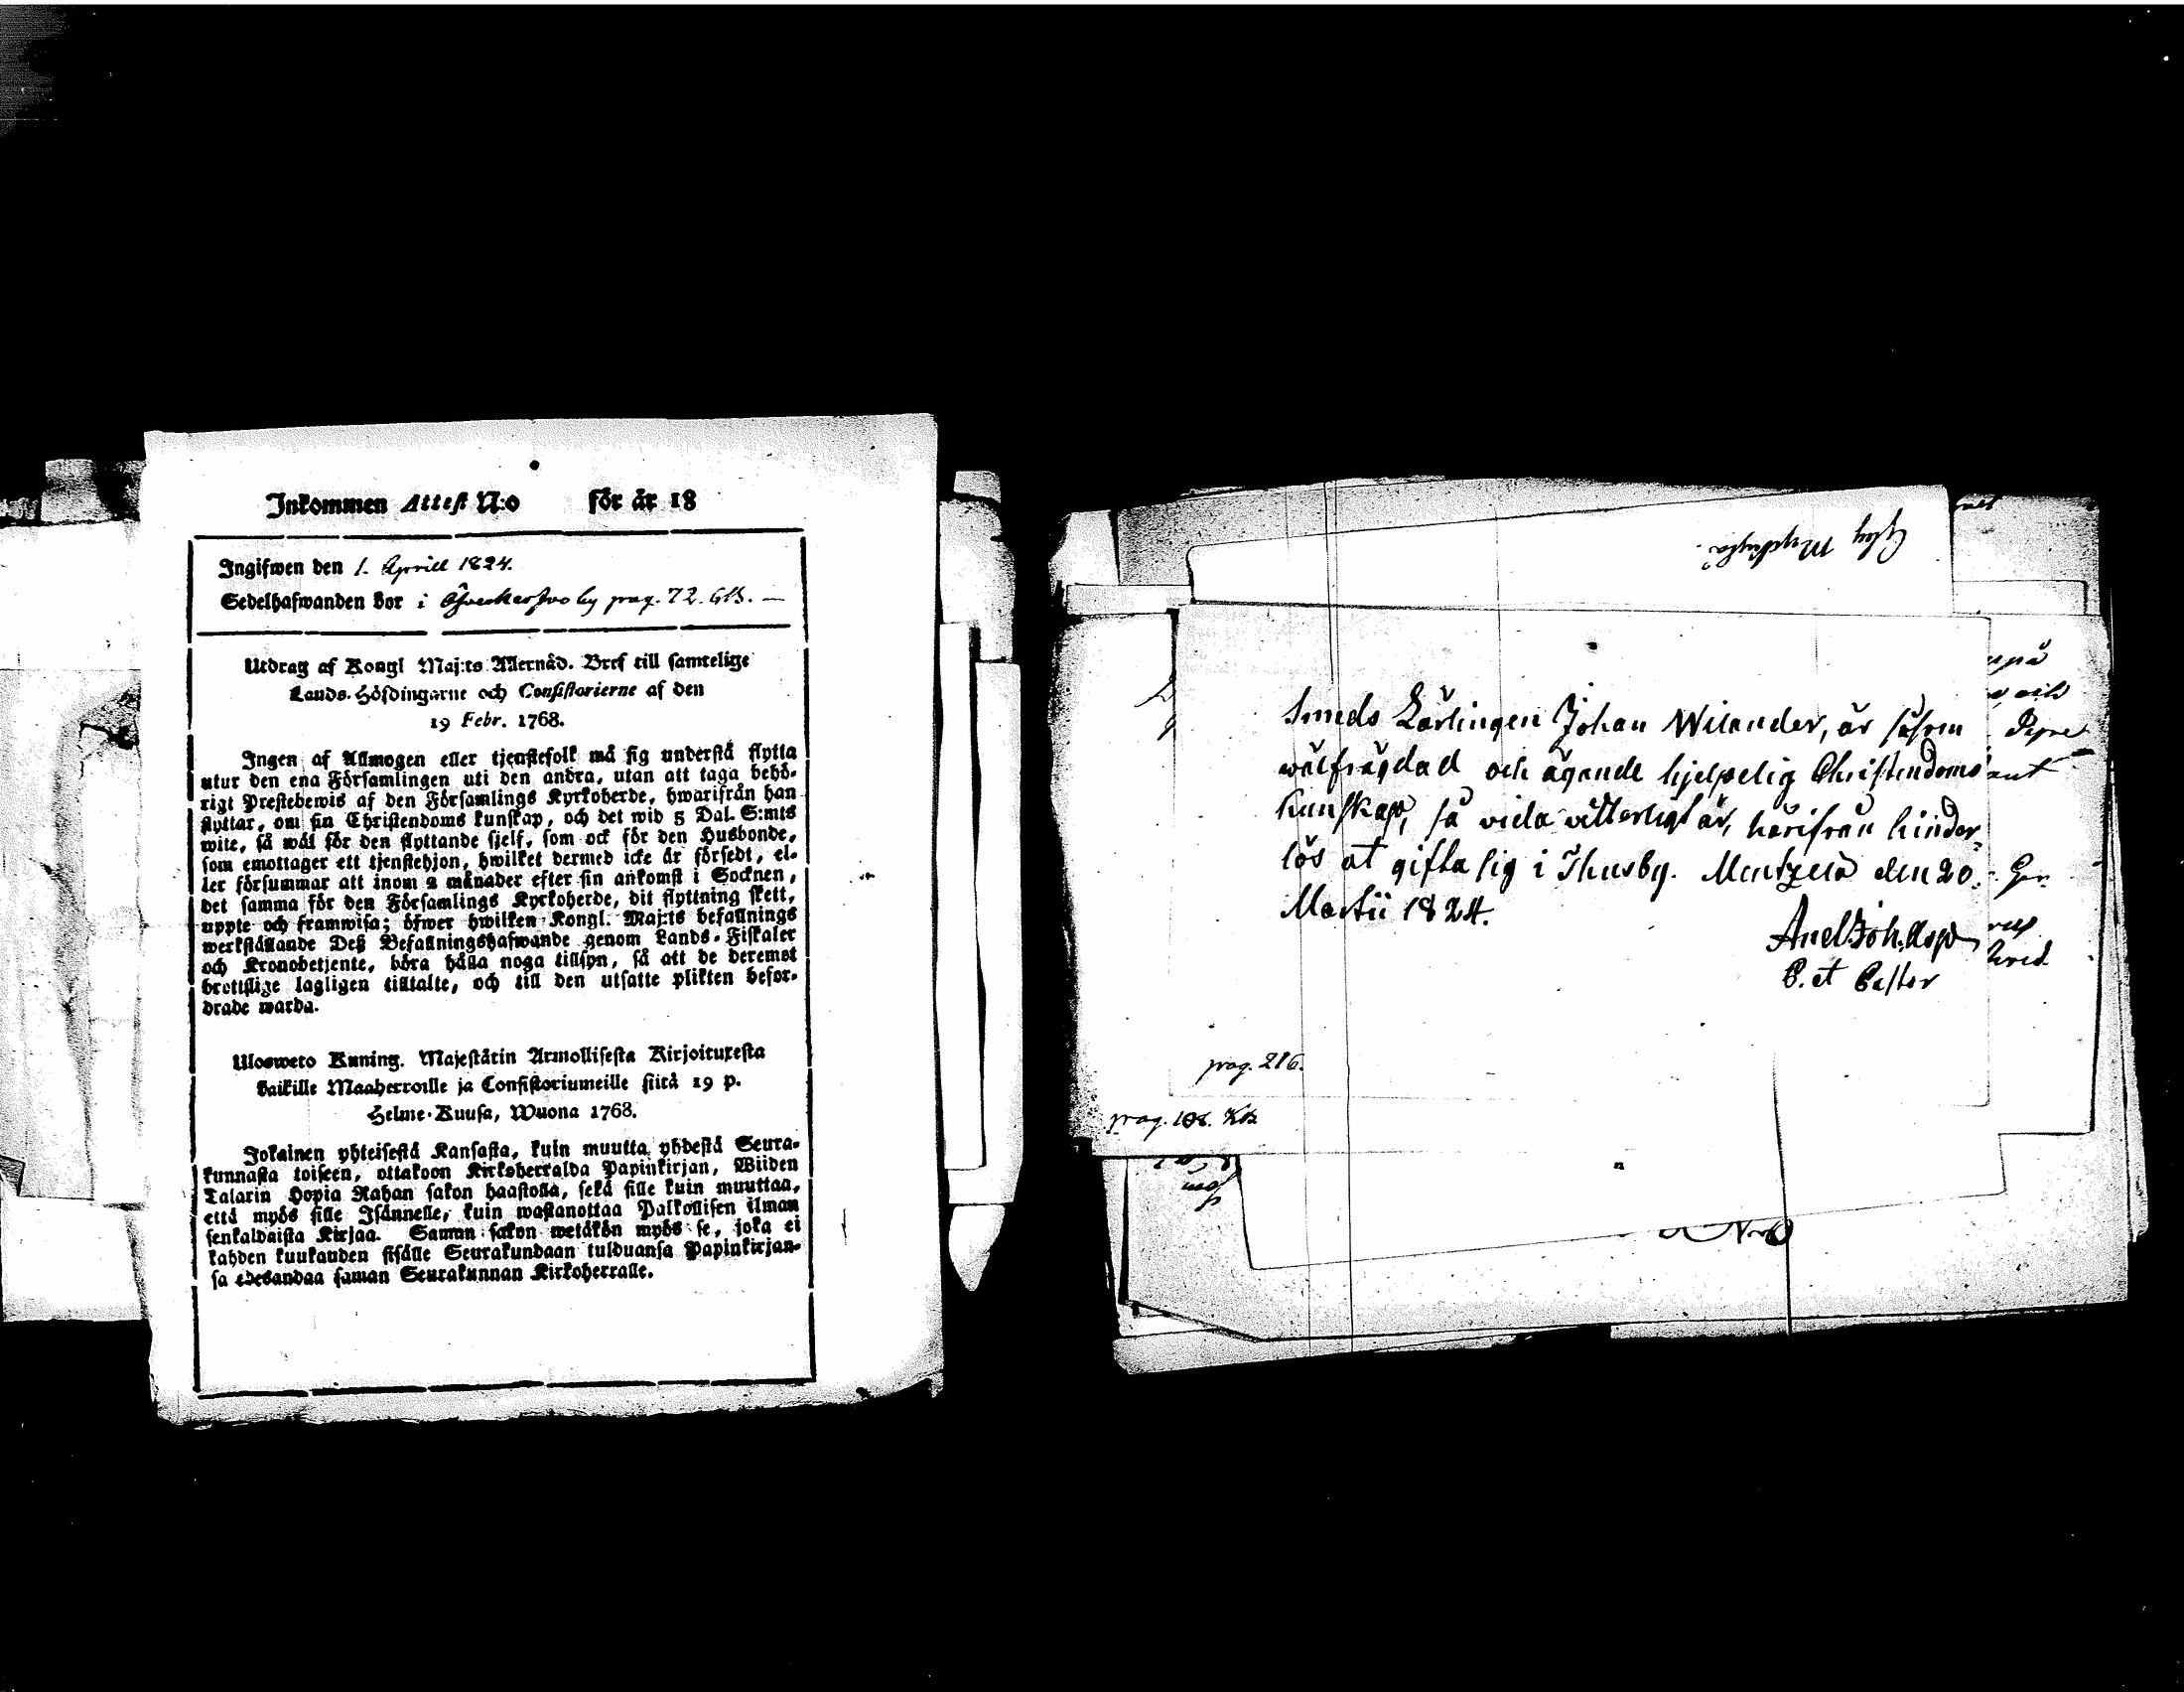 Inkommen Attest N:o för år 18
Ingifwen den 1. Aprill 1824.
Sedelhafwanden bor i by pag. 72. GB. —
Utdrag af Kongl Maj:ts Allernåd. Bref till samtelige
Lands-Höfdingarne och Consistorierne af den
19 Febr. 1768.
Ingen af Allmogen eller tjenstefolk må sig understå flytta
utur den ena Församlingen uti den andra, utan att taga behö-
rigt Prestebewis af den Församlings Kyrkoherde, hwarifrån han
flyttar, om sin Christendoms kunskap, och det wid 5 Dal. S:mts
wite, så wäl för den flyttande sjelf, som ock för den Husbonde,
som emottager ett tjenstehjon, hwilket dermed icke är försedt, el-
ler försummar att inom 2 månader efter sin ankomst i Socknen,
det samma för den Församlings Kyrkoherde, dit flyttning skett,
uppte och framwisa; öfwer hwilken Kongl. Maj:ts befallnings
werkställande Deß Befallningshafwande genom Lands-Fiskaler
och Kronobetjente, böra hålla noga tillsyn, så att de deremot
brottslige lagligen tilltalte, och till den utsatte plikten befor-
drade warda.
Ulosweto Kuning. Majestätin Armollisesta Kirjoituxesta
kaikille Maaherroille ja Consistoriumeille siitä 19 p.
Helme-Kuusa, Wuona 1768.
Jokainen yhteisestä Kansasta, kuin muutta yhdestä Seura-
kunnasta toiseen, ottakoon Kirkoherralda Papinkirjan, Wiiden
Talarin Hopia Rahan sakon haastolla, sekä sille kuin muuttaa,
että myös sille Isännelle, kuin wastanottaa Palkollisen ilman
senkaldaista Kirjaa. Saman sakon wetäkön myös se, joka ei
kahden kuukauden sisälle Seurakundaan tulduansa Papinkirjan-
sa edesandaa saman Seurakunnan Kirkoherralle.
Smeds Lärlingen Johan Wilander, är såsom
wälfräjdad och ägande hjelpelig Christendoms
kunskap, så vida vitterligt är, härifrån hinder-
lös at gifta sig i Thusby. Mentzelä den 20.
Martii 1824.
P. et Pastor
pag. 216.
pag. 108. KB